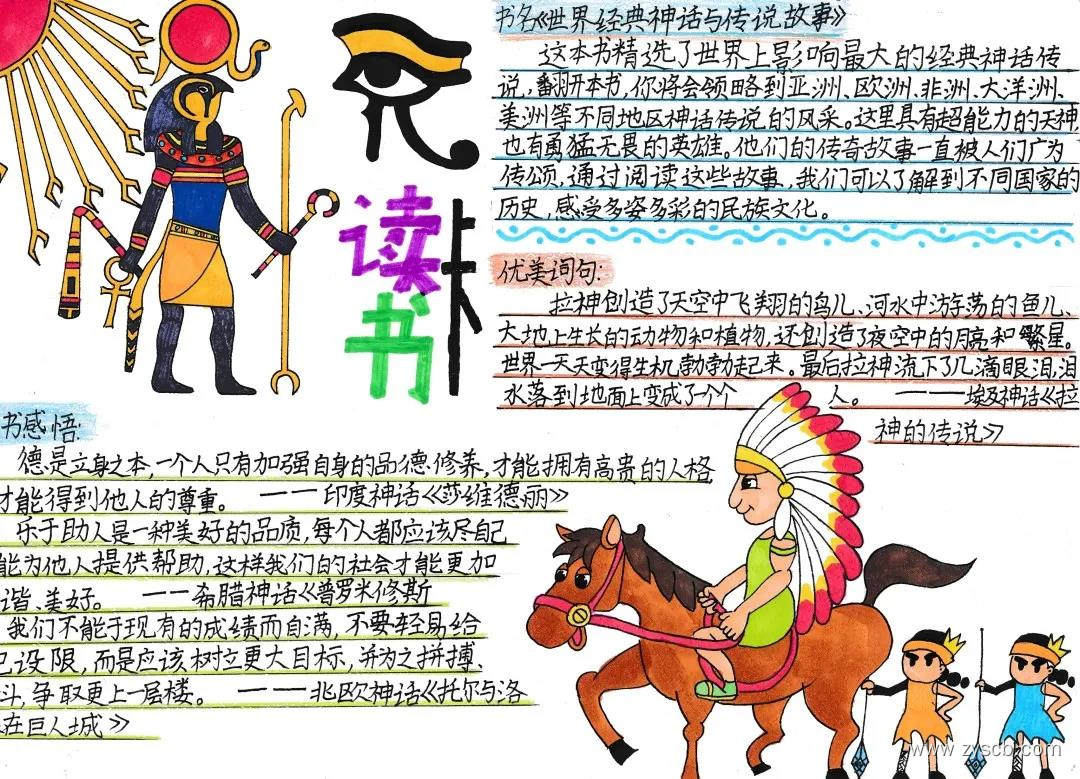 书名《世界经典神话与传说故事》
这本书精选了世界上影响最大的经典神话传
说,翻开本书,你将会领略到亚洲、欧洲、非洲、大洋洲、
美洲等不同地区神话传说的风采。这里具有超能力的天神,
也有勇猛无畏的英雄。他们的传奇故事一直被人们广为
传颂,通过阅读这些故事,我们可以了解到不同国家的
历史,感受多姿多彩的民族文化。
读书卡
优美词句:
拉神创造了天空中飞翔的鸟儿、河水中游荡的鱼儿、
大地上生长的动物和植物,还创造了夜空中的月亮和繁星。
世界一天天变得生机勃勃起来。最后拉神流下了几滴眼泪,泪
水落到地面上变成了一个个人。——埃及神话《拉
神的传说》
书感悟:
德是立身之本,一个人只有加强自身的品德修养,才能拥有高贵的人格
才能得到他人的尊重。——印度神话《莎维德丽》
乐于助人是一种美好的品质,每个人都应该尽自己
能为他人提供帮助,这样我们的社会才能更加
谐、美好。——希腊神话《普罗米修斯
我们不能于现有的成绩而自满,不要轻易给
己设限,而是应该树立更大目标,并为之拼搏、
斗,争取更上一层楼。——北欧神话《托尔与洛
在巨人城》
www.zyscb.com